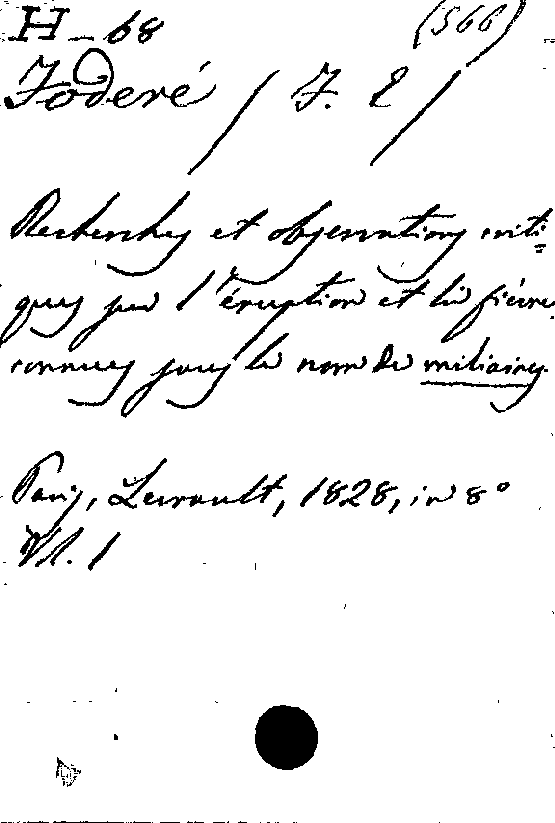 H - 68 (566)
Foderé / F. E /
Recherches et observations criti=
ques sur l'éruption et la fièvre
connues sous le nom de miliaires.
Paris, Levrault, 1828, in 8°
Vl. 1